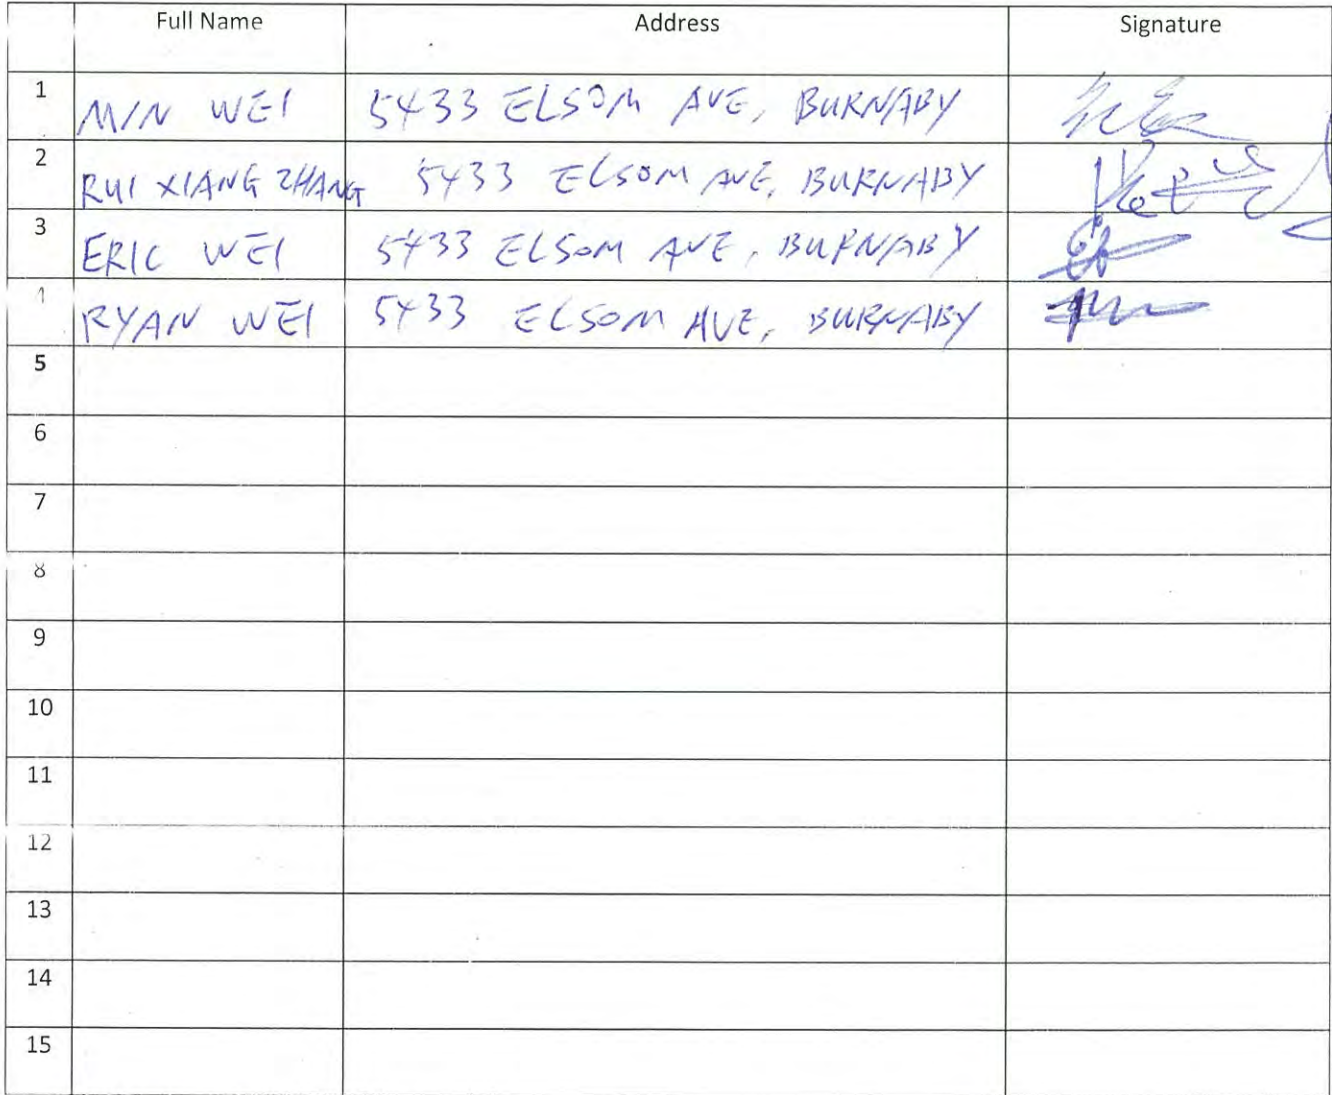 Full Name Address Signature
1 MIN WEI 5433 ELSOM AVE, BURNABY
2 RUI XIANG ZHANG 5433 ELSOM AVE, BURNABY
3 ERIC WEI 5433 ELSOM AVE, BURNABY
4 RYAN WEI 5433 ELSOM AVE, BURNABY
5
6
7
8
9
10
11
12
13
14
15